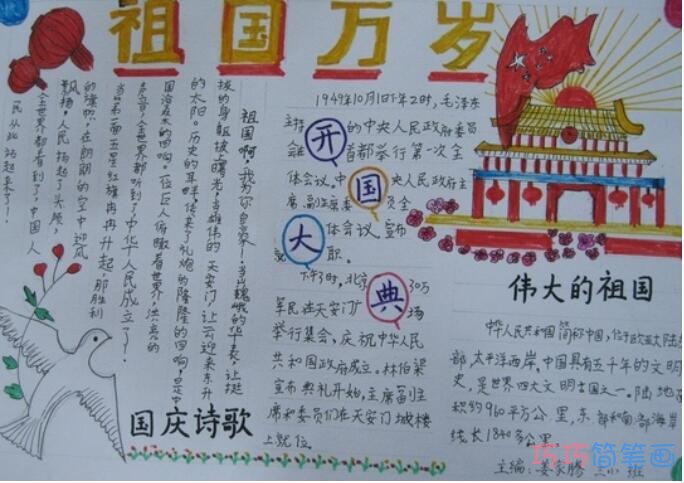 祖国万岁
祖国啊，我为你自豪！当巍峨的华表，让挺
拔的身躯披上曙光。当雄伟的天安门，让云迎来东升
的太阳。历史的耳畔，传来了礼炮的隆隆的回响，是中
国沧桑的回响。一位巨人俯瞰着世界，洪亮的
声音，全世界都听到了，中华人民成立了！
当第一面五星红旗冉冉升起，那胜利
的旗帜，在朗朗的空中迎风
飘扬。人民扬起了头颅，
全世界都看到了，中国人
民从此站起来了！
国庆诗歌
开国大典
1949年10月1日下午2时，毛泽东
主持 的中央人民政府委员
会在 首都举行第一次全
体会议。中 央人民政府主
席、副主席委 员全
体会议，宣布
就 职。
下午3时，北京 30万
军民在天安门广 场
举行集会、庆祝中华人民
共和国政府成立。林伯渠
宣布典礼开始，主席副主
席和委员们在天安门城楼
上就位。
伟大的祖国
中华人民共和国简称中国，位于欧亚大陆东
部，太平洋西岸。中国具有五千年的文明
史，是世界四大文明古国之一。陆地面
积约960平方公里，东部和南部海岸
线长1840多公里。
主编：姜家腾 三小 班
巧巧简笔画